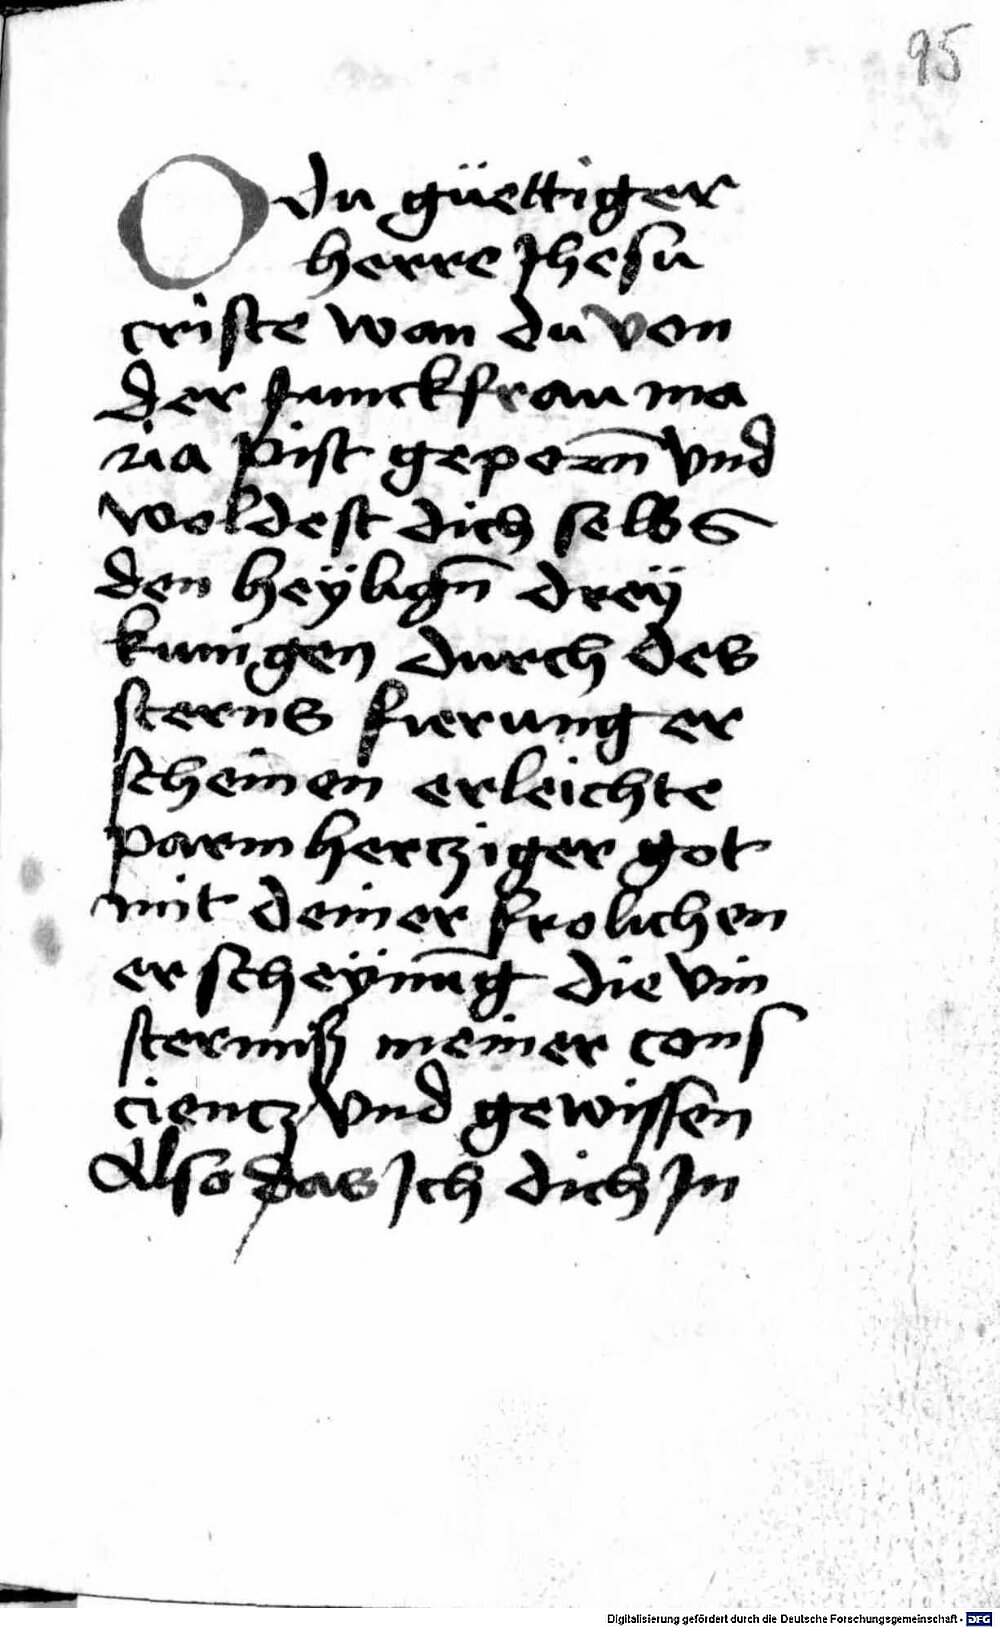 95
O du güettiger
herre Jhesu
criste wan du von
der Junckfrau ma
ria pist geporn̄ vnd
woldest dich selbs
den heÿlign̄ dreÿ
kunigen durch des
sterns fierung er
scheinen erleichte
parmhercziger got
mit deiner frolichen
erscheÿnūg die vin
sternuß meiner cons
ciencz vnd gewissen
Also das Ich dich In
Digitalisierung gefördert durch die Deutsche Forschungsgemeinschaft - DFG